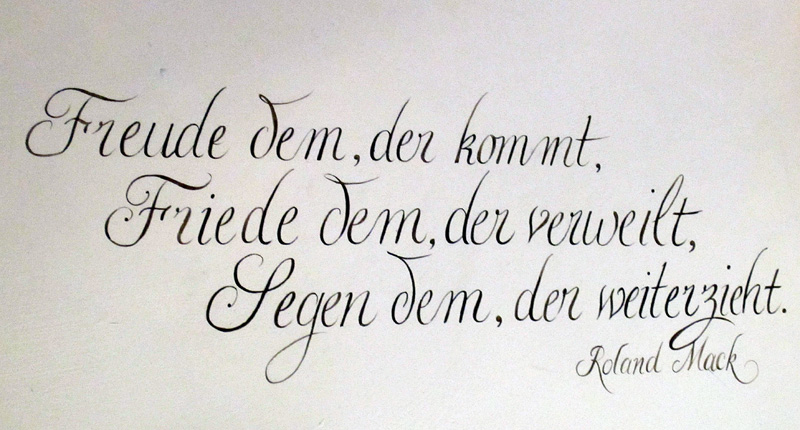 Freude dem, der kommt,
Friede dem, der verweilt,
Segen dem, der weiterzieht.
Roland Mack